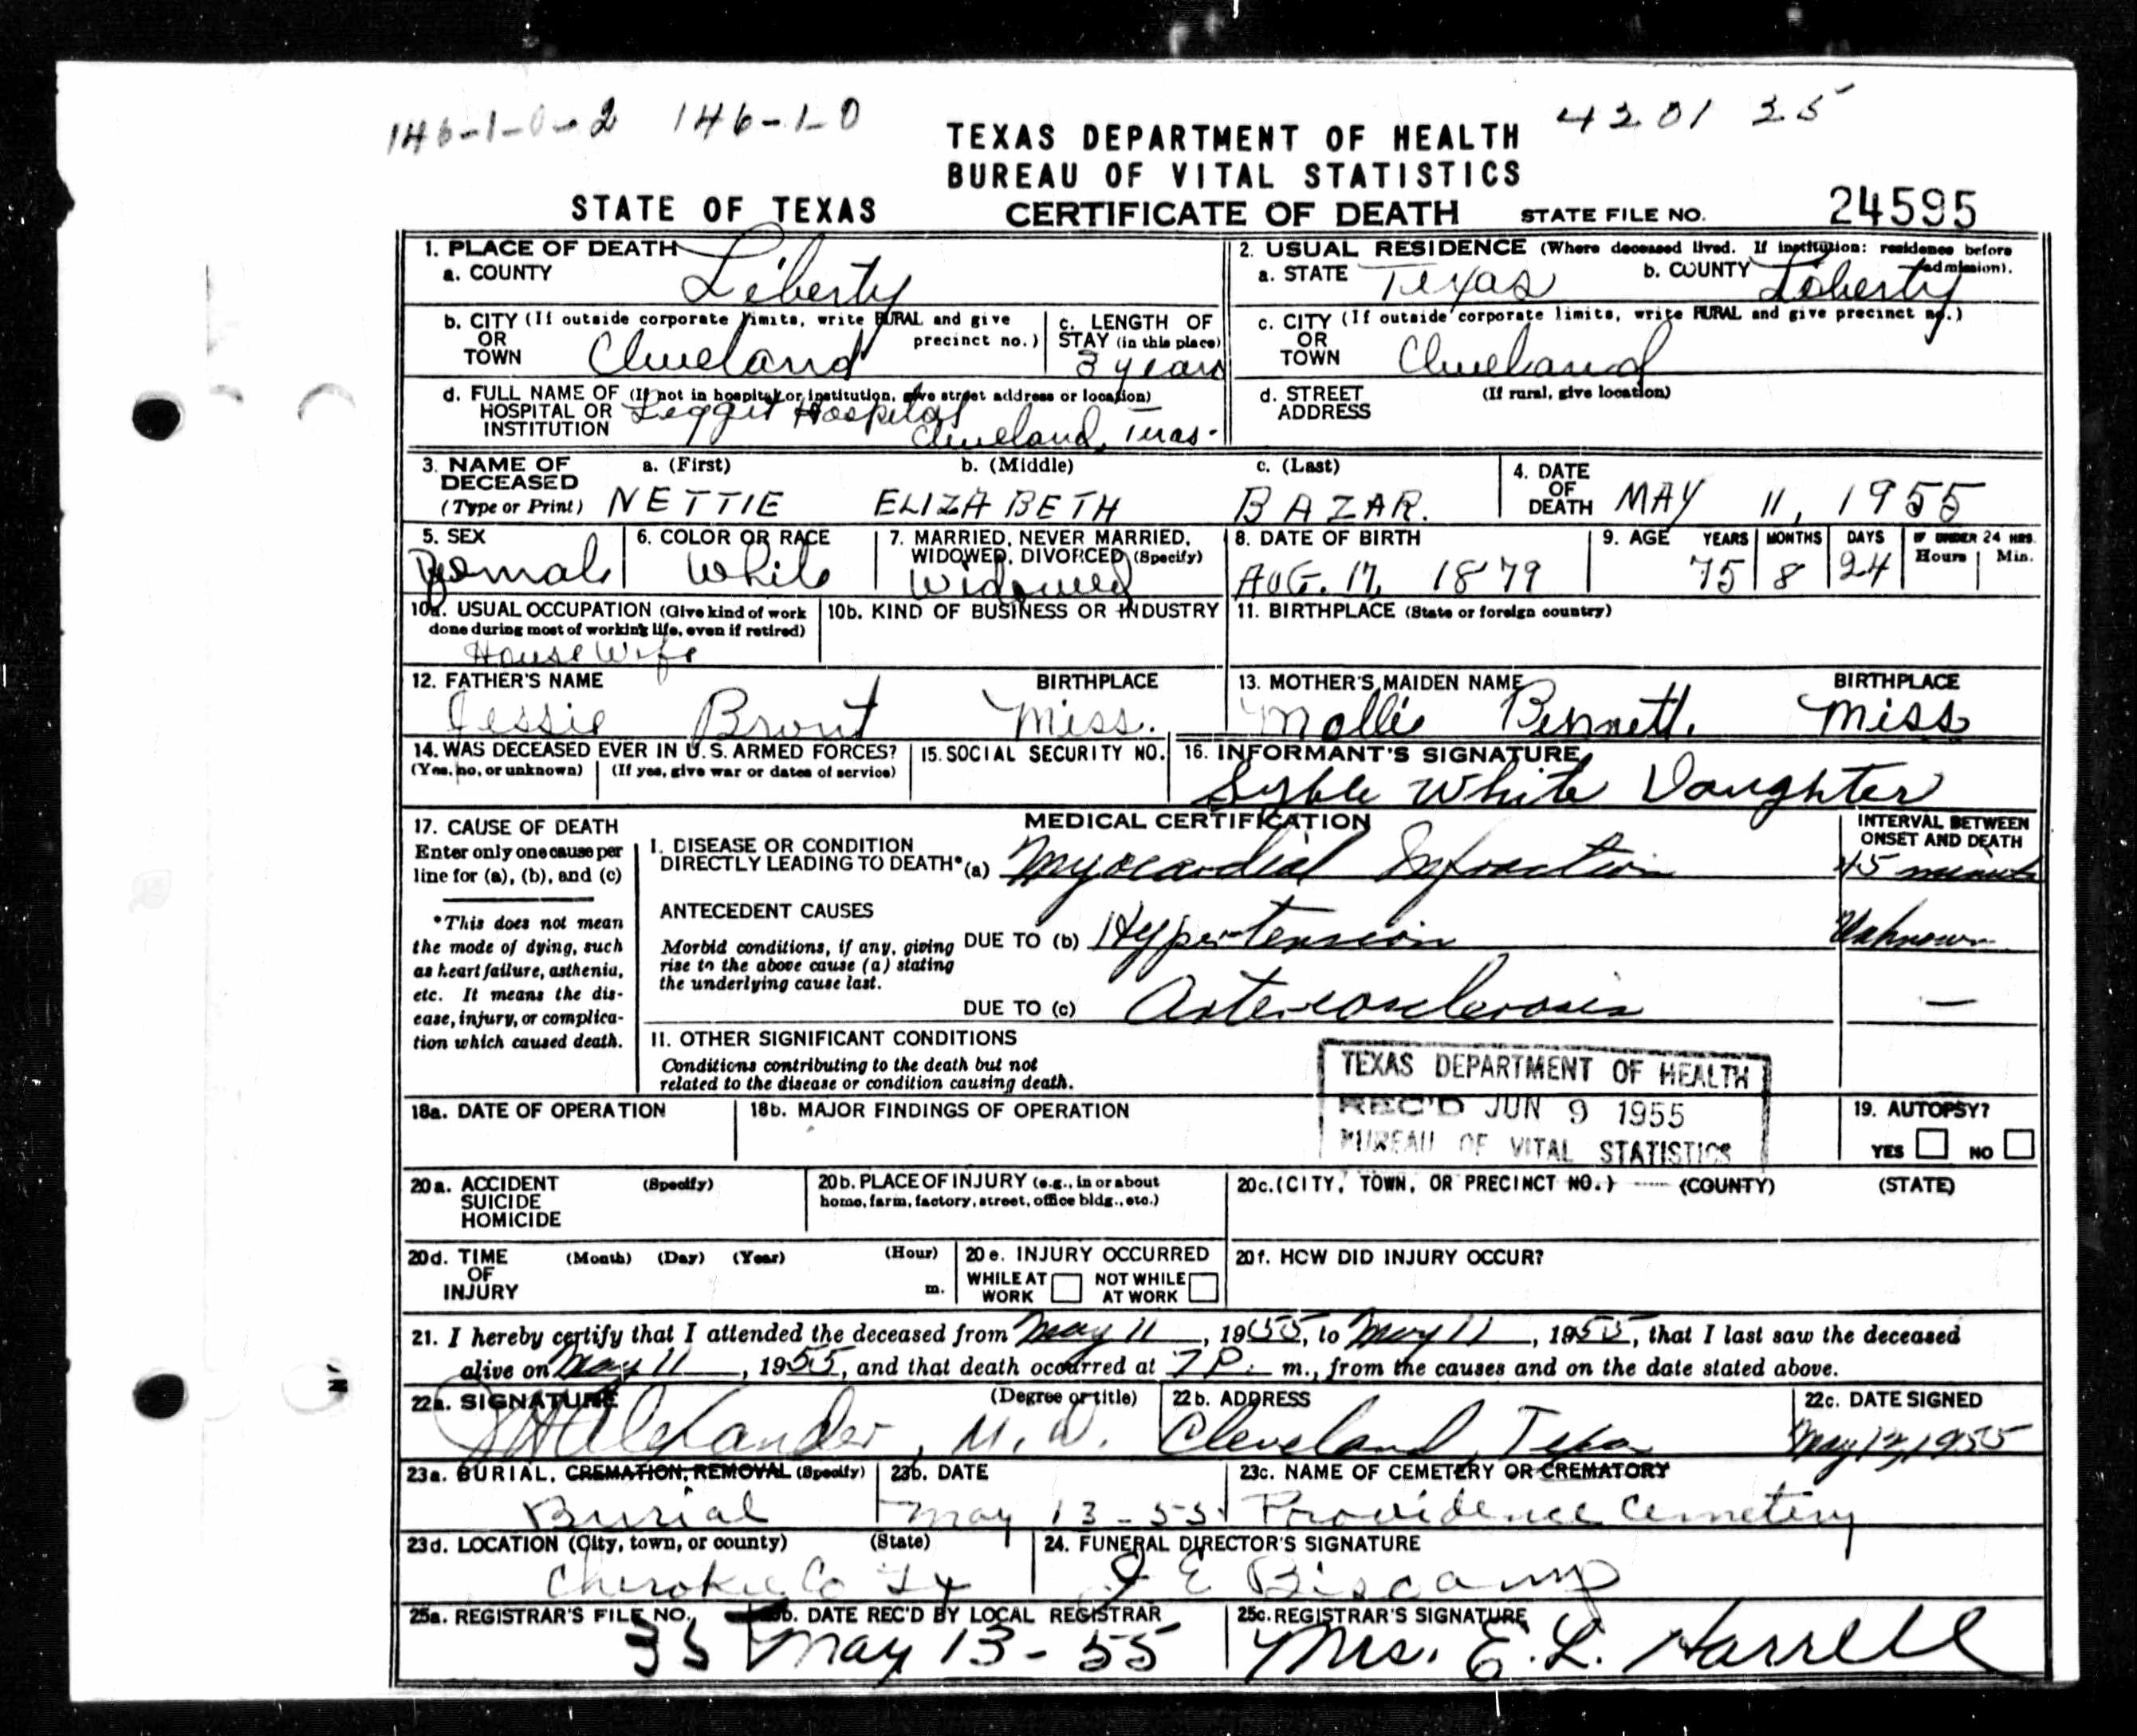 146-1-0-2 146-1-0 4201 25
TEXAS DEPARTMENT OF HEALTH
BUREAU OF VITAL STATISTICS
STATE OF TEXAS CERTIFICATE OF DEATH STATE FILE NO. 24595
1. PLACE OF DEATH
a. COUNTY Liberty
2. USUAL RESIDENCE (Where deceased lived. If institution: residence before admission).
a. STATE Texas b. COUNTY Liberty
b. CITY (If outside corporate limits, write RURAL and give precinct no.)
OR
TOWN Cleveland
c. LENGTH OF STAY (in this place)
3 years
c. CITY (If outside corporate limits, write RURAL and give precinct no.)
OR
TOWN Cleveland
d. FULL NAME OF (If not in hospital or institution, give street address or location)
HOSPITAL OR
INSTITUTION Leggit Hospital
Cleveland, Texas.
d. STREET (If rural, give location)
ADDRESS
3. NAME OF DECEASED a. (First) b. (Middle) c. (Last)
(Type or Print) NETTIE ELIZABETH BAZAR.
4. DATE OF DEATH MAY 11, 1955
5. SEX
Female
6. COLOR OR RACE
White
7. MARRIED, NEVER MARRIED, WIDOWED, DIVORCED (Specify)
Widowed
8. DATE OF BIRTH
AUG. 17, 1879
9. AGE YEARS MONTHS DAYS IF UNDER 24 HRS. Hours Min.
75 8 24
10a. USUAL OCCUPATION (Give kind of work done during most of working life, even if retired)
House Wife
10b. KIND OF BUSINESS OR INDUSTRY
11. BIRTHPLACE (State or foreign country)
12. FATHER'S NAME BIRTHPLACE
Jessie Brout Miss.
13. MOTHER'S MAIDEN NAME BIRTHPLACE
Mollie Bennett. Miss
14. WAS DECEASED EVER IN U.S. ARMED FORCES?
(Yes, no, or unknown) (If yes, give war or dates of service)
15. SOCIAL SECURITY NO.
16. INFORMANT'S SIGNATURE
Syble White Daughter
17. CAUSE OF DEATH
Enter only one cause per
line for (a), (b), and (c)
*This does not mean
the mode of dying, such
as heart failure, asthenia,
etc. It means the dis-
ease, injury, or complica-
tion which caused death.
MEDICAL CERTIFICATION
INTERVAL BETWEEN
ONSET AND DEATH
I. DISEASE OR CONDITION
DIRECTLY LEADING TO DEATH* (a) Myocardial Infraction 45 minutes
ANTECEDENT CAUSES
Morbid conditions, if any, giving
rise to the above cause (a) stating
the underlying cause last.
DUE TO (b) Hypertension Unknown
DUE TO (c) Arteriosclerosis —
II. OTHER SIGNIFICANT CONDITIONS
Conditions contributing to the death but not
related to the disease or condition causing death.
TEXAS DEPARTMENT OF HEALTH
REC'D JUN 9 1955
BUREAU OF VITAL STATISTICS
18a. DATE OF OPERATION
18b. MAJOR FINDINGS OF OPERATION
19. AUTOPSY?
YES NO
20a. ACCIDENT (Specify)
SUICIDE
HOMICIDE
20b. PLACE OF INJURY (e.g., in or about
home, farm, factory, street, office bldg., etc.)
20c. (CITY, TOWN, OR PRECINCT NO.) (COUNTY) (STATE)
20d. TIME (Month) (Day) (Year) (Hour)
OF
INJURY m.
20e. INJURY OCCURRED
WHILE AT WORK NOT WHILE AT WORK
20f. HOW DID INJURY OCCUR?
21. I hereby certify that I attended the deceased from May 11, 1955, to May 11, 1955, that I last saw the deceased
alive on May 11, 1955, and that death occurred at 7 P. m., from the causes and on the date stated above.
22a. SIGNATURE (Degree or title)
Alexander, M.D.
22b. ADDRESS
Cleveland, Texas
22c. DATE SIGNED
May 12, 1955
23a. BURIAL, CREMATION, REMOVAL (Specify)
Burial
23b. DATE
May 13-55
23c. NAME OF CEMETERY OR CREMATORY
Providence Cemetery
23d. LOCATION (City, town, or county) (State)
Cherokee Co Tx
24. FUNERAL DIRECTOR'S SIGNATURE
J E Biscamp
25a. REGISTRAR'S FILE NO.
35
25b. DATE REC'D BY LOCAL REGISTRAR
May 13-55
25c. REGISTRAR'S SIGNATURE
Mrs. E. L. Harrell